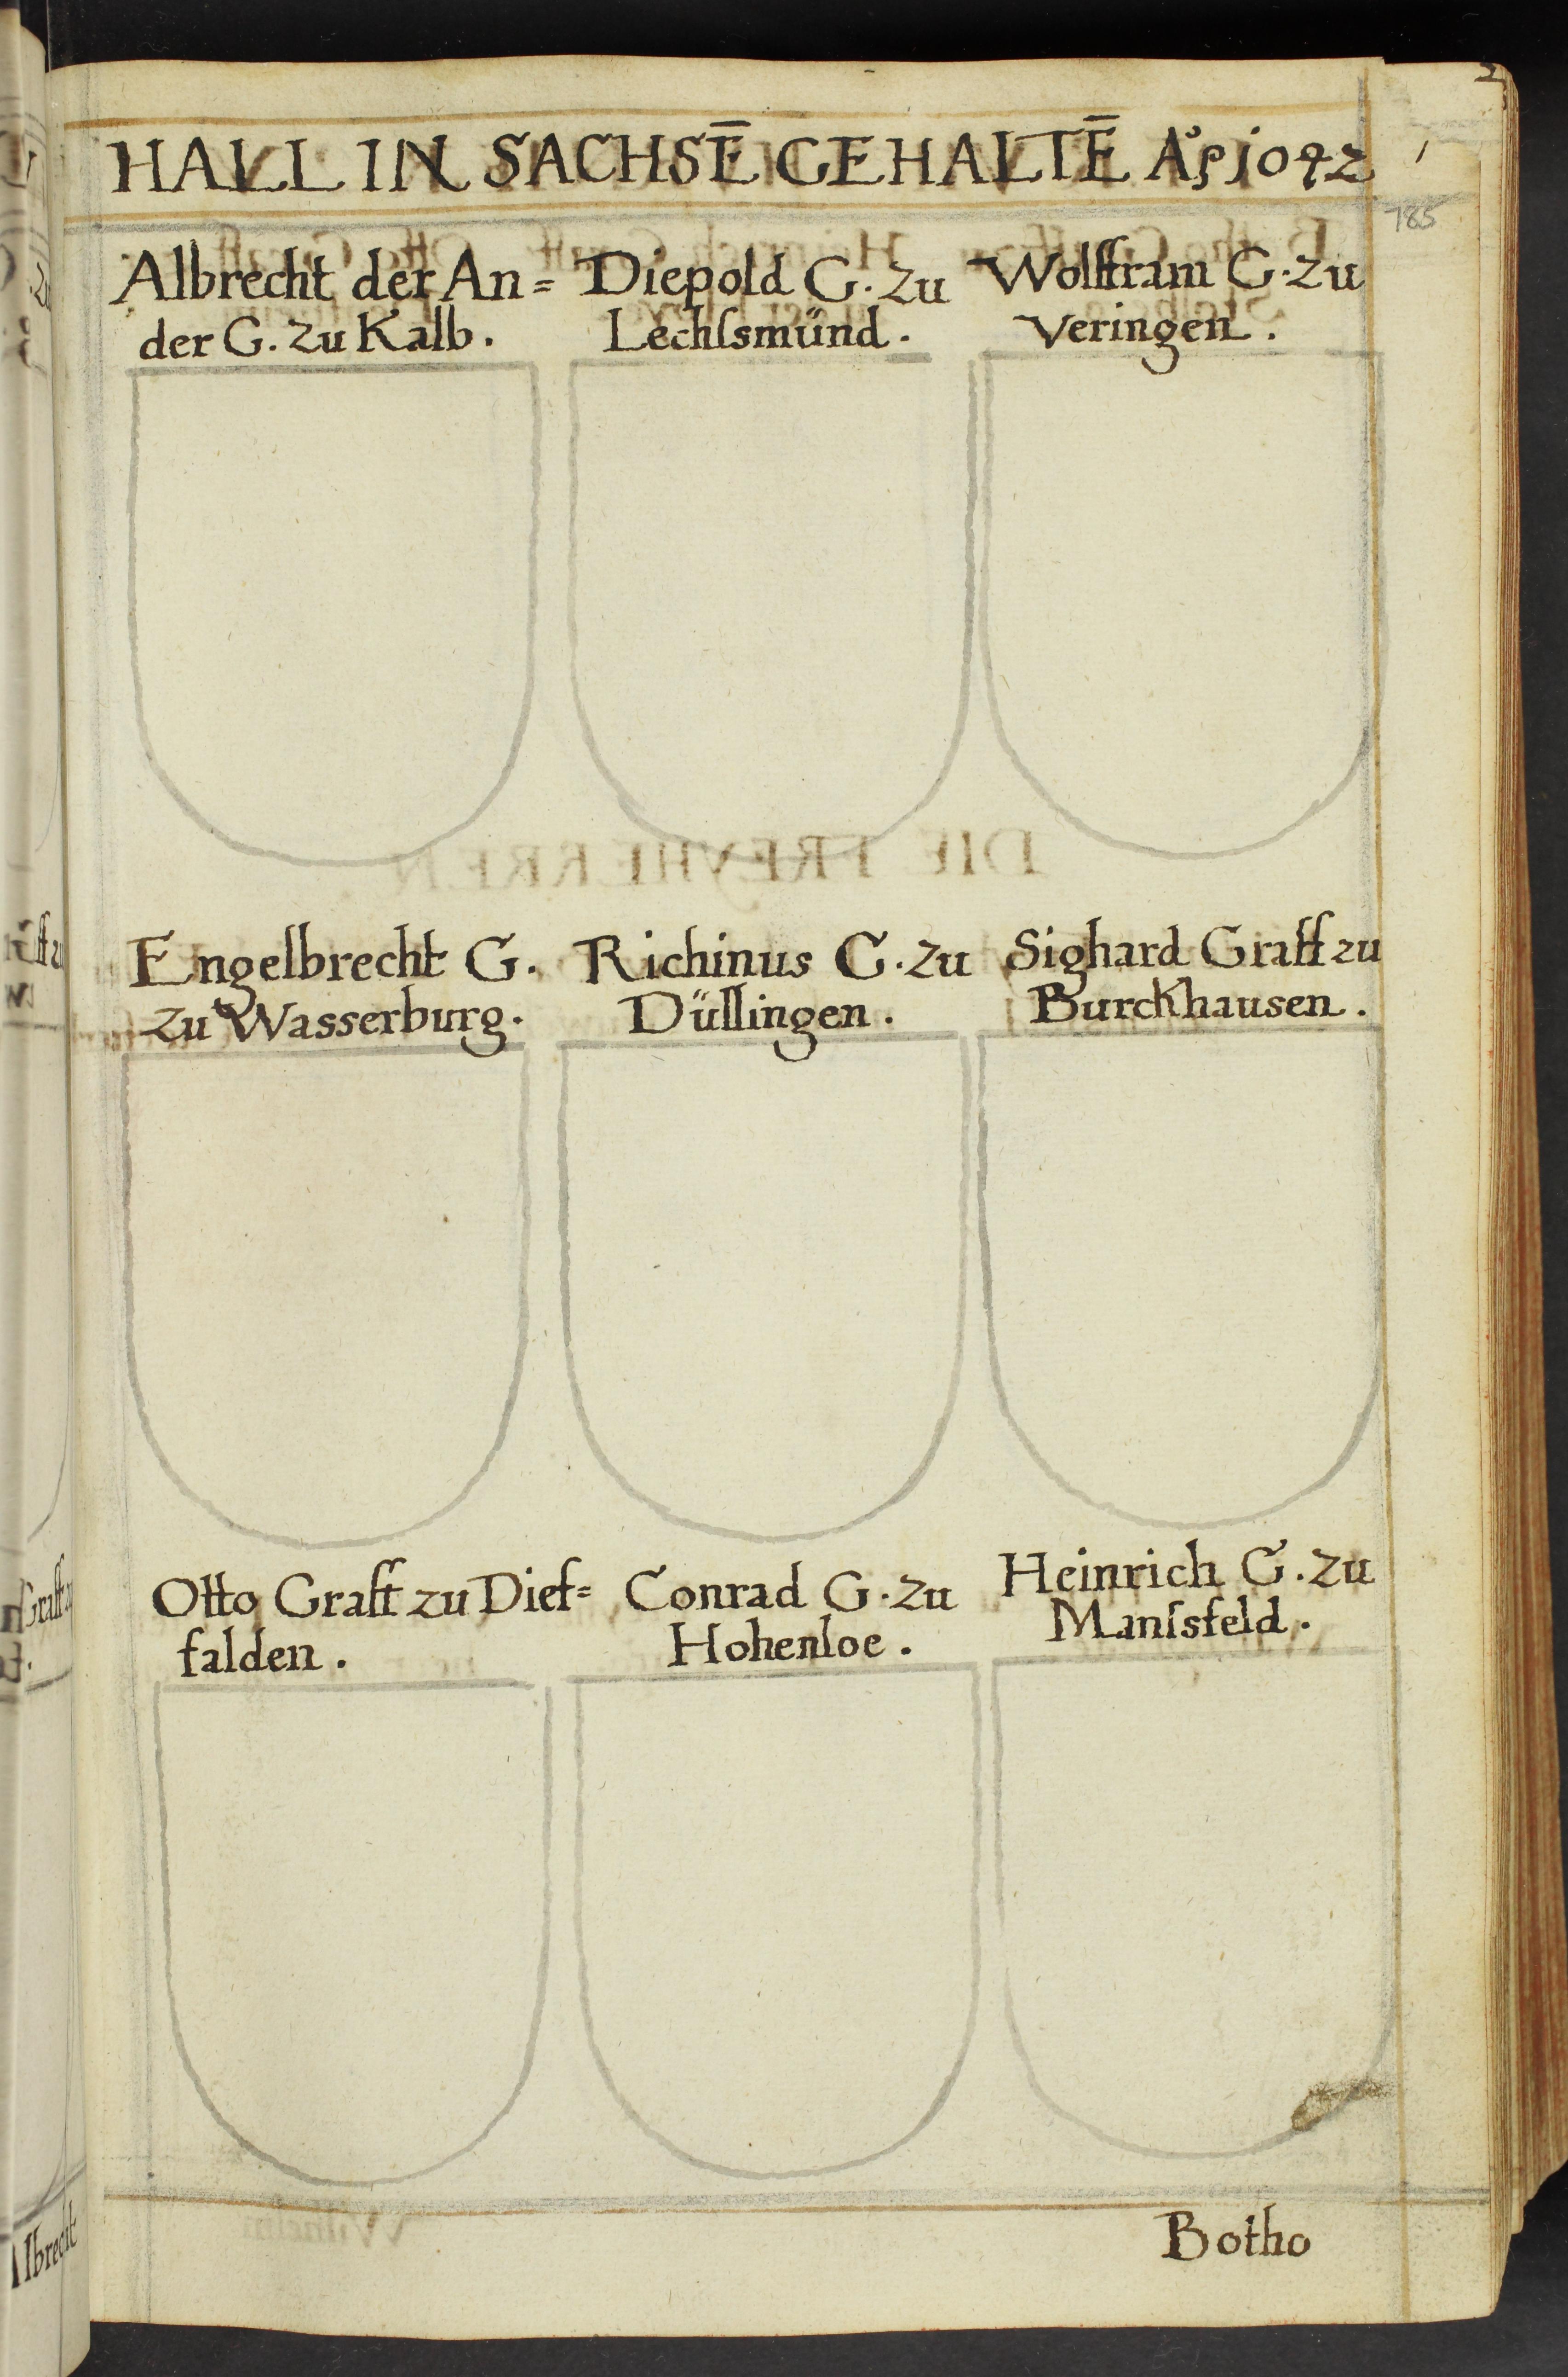 HALL IN SACHSĒ GEHALTĒ Aº 1042
785
Albrecht der An=
der G. zu Kalb.
Diepold G. zu
Lechſsmünd.
Wolffram G. zu
Veringen.
Engelbrecht G.
zu Wasserburg.
Richinus G. zu
Düllingen.
Sighard Graff zu
Burckhausen.
Otto Graff zu Dief=
falden.
Conrad G. zu
Hohenloe.
Heinrich G. zu
Manſsfeld.
Botho
Albrecht